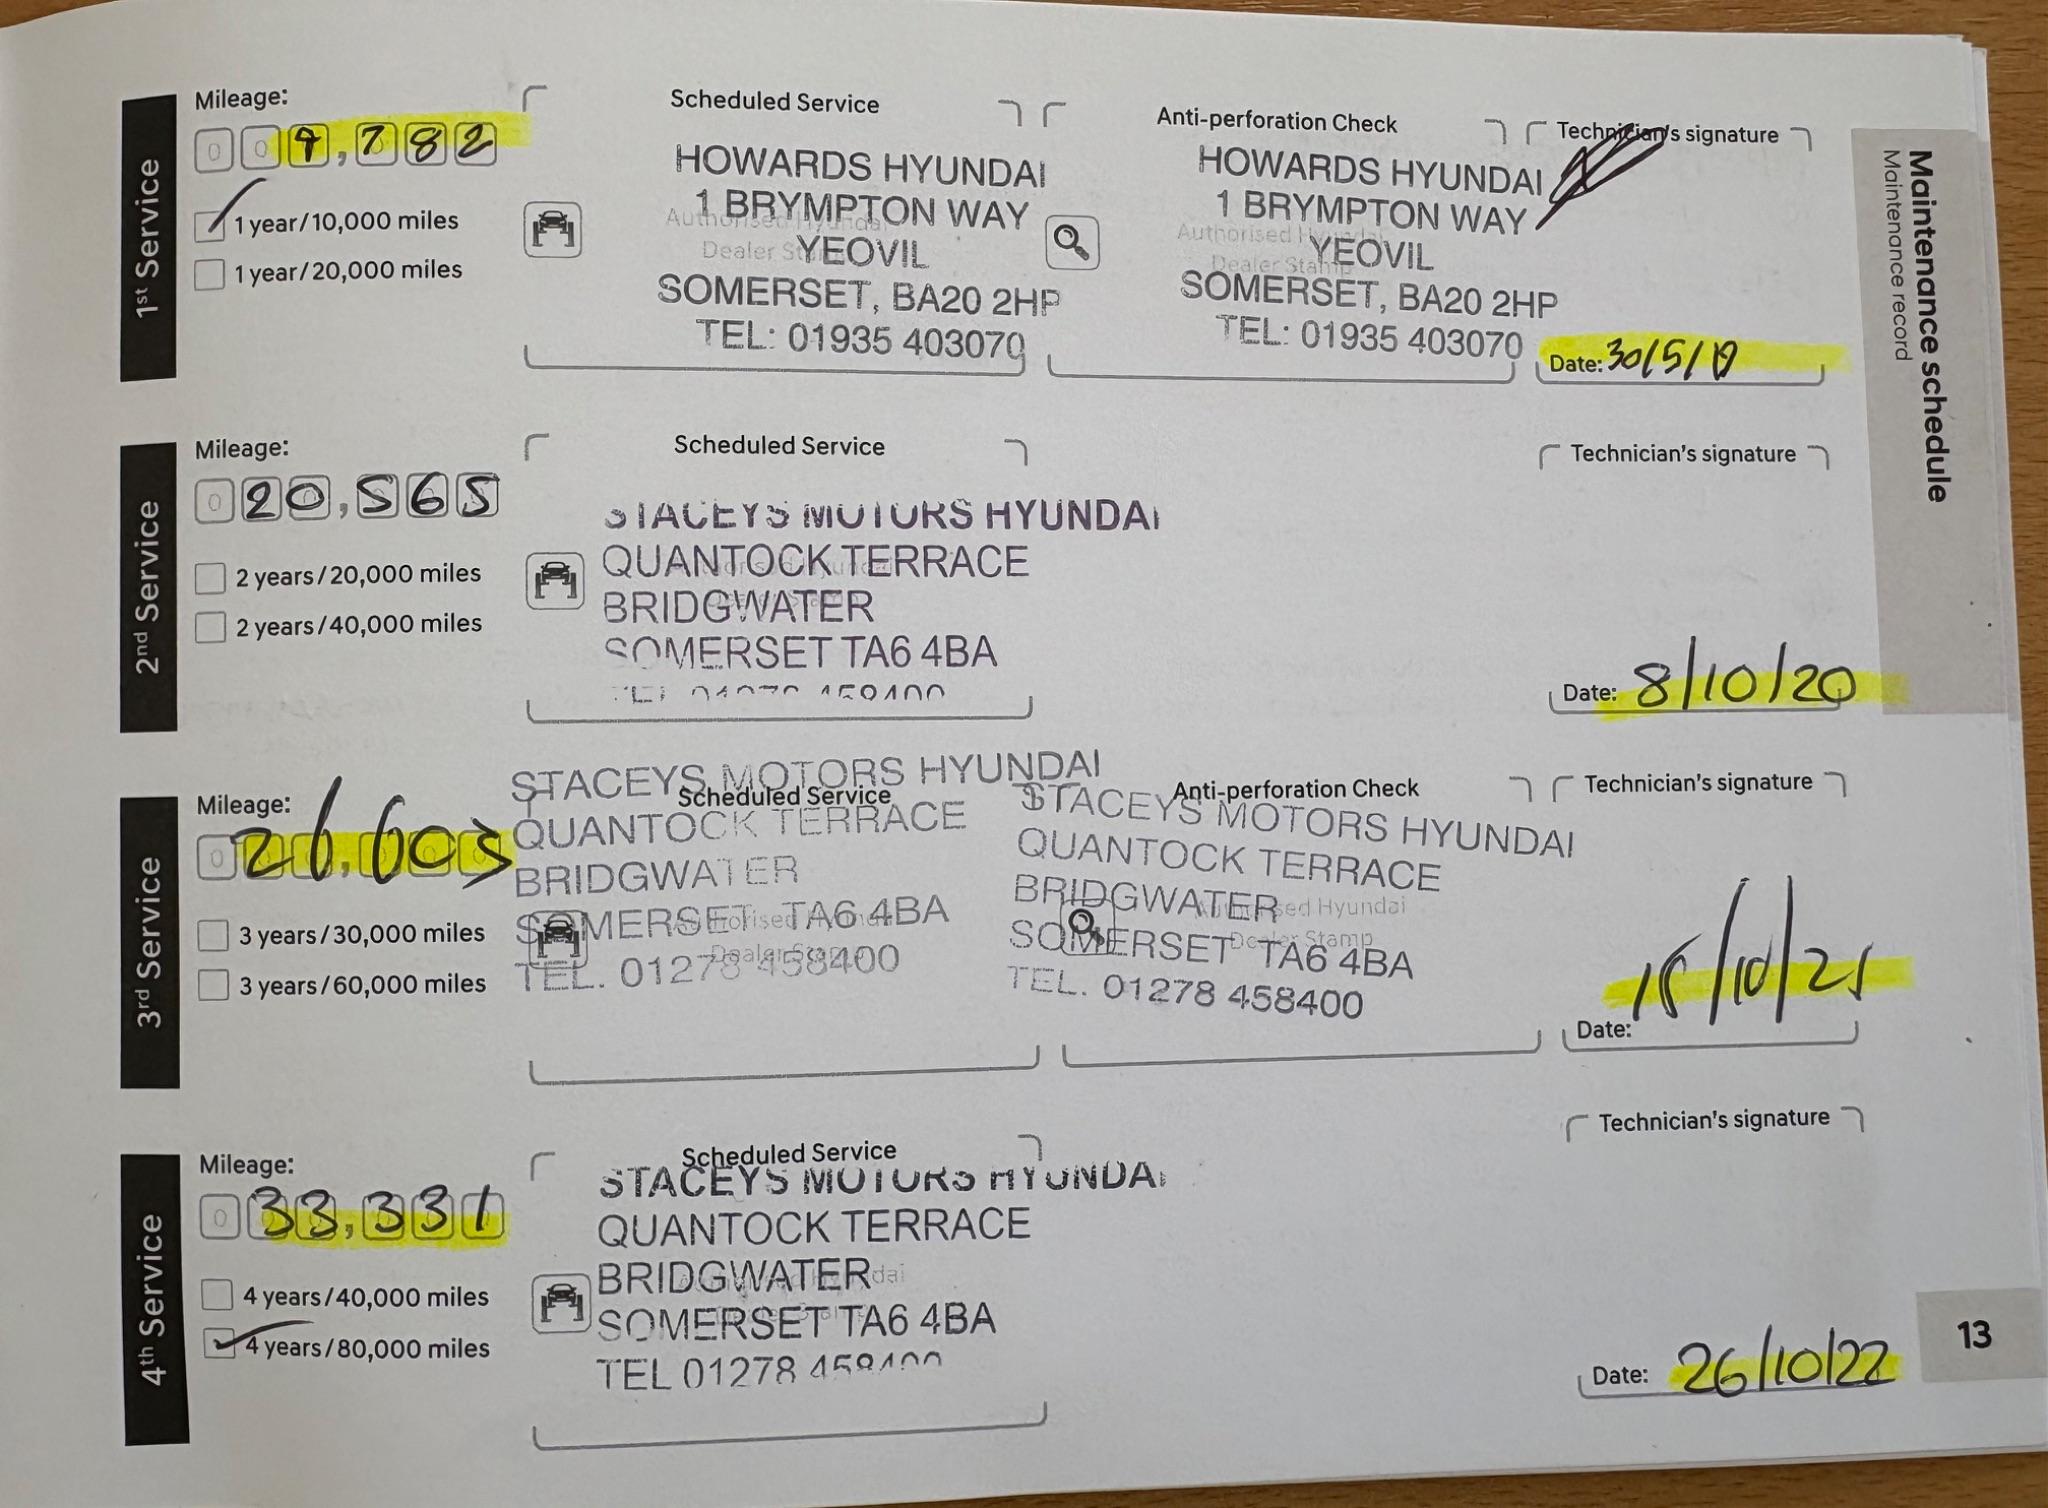 1st Service
Mileage:
00 , 782
1 year/10,000 miles
1 year/20,000 miles
Scheduled Service
Authorised Hyundai
Dealer Stamp
HOWARDS HYUNDAI
1 BRYMPTON WAY
YEOVIL
SOMERSET, BA20 2HP
TEL: 01935 403070
Anti-perforation Check
Authorised Hyundai
Dealer Stamp
HOWARDS HYUNDAI
1 BRYMPTON WAY
YEOVIL
SOMERSET, BA20 2HP
TEL: 01935 403070
Technician's signature
Date: 30/5/19
2nd Service
Mileage:
020,565
2 years/20,000 miles
2 years/40,000 miles
Scheduled Service
STACEYS MOTORS HYUNDAI
QUANTOCK TERRACE
BRIDGWATER
SOMERSET TA6 4BA
TEL 01278 458400
Technician's signature
Date: 8/10/20
3rd Service
Mileage:
026,603
3 years/30,000 miles
3 years/60,000 miles
Scheduled Service
STACEYS MOTORS HYUNDAI
QUANTOCK TERRACE
BRIDGWATER
SOMERSET TA6 4BA
TEL. 01278 458400
Anti-perforation Check
Authorised Hyundai
Dealer Stamp
STACEYS MOTORS HYUNDAI
QUANTOCK TERRACE
BRIDGWATER
SOMERSET TA6 4BA
TEL. 01278 458400
Technician's signature
Date: /10/21
4th Service
Mileage:
033,331
4 years/40,000 miles
4 years/80,000 miles
Scheduled Service
STACEYS MOTORS HYUNDAI
QUANTOCK TERRACE
BRIDGWATER
SOMERSET TA6 4BA
TEL 01278 458400
Technician's signature
Date: 26/10/22
Maintenance schedule
Maintenance record
13